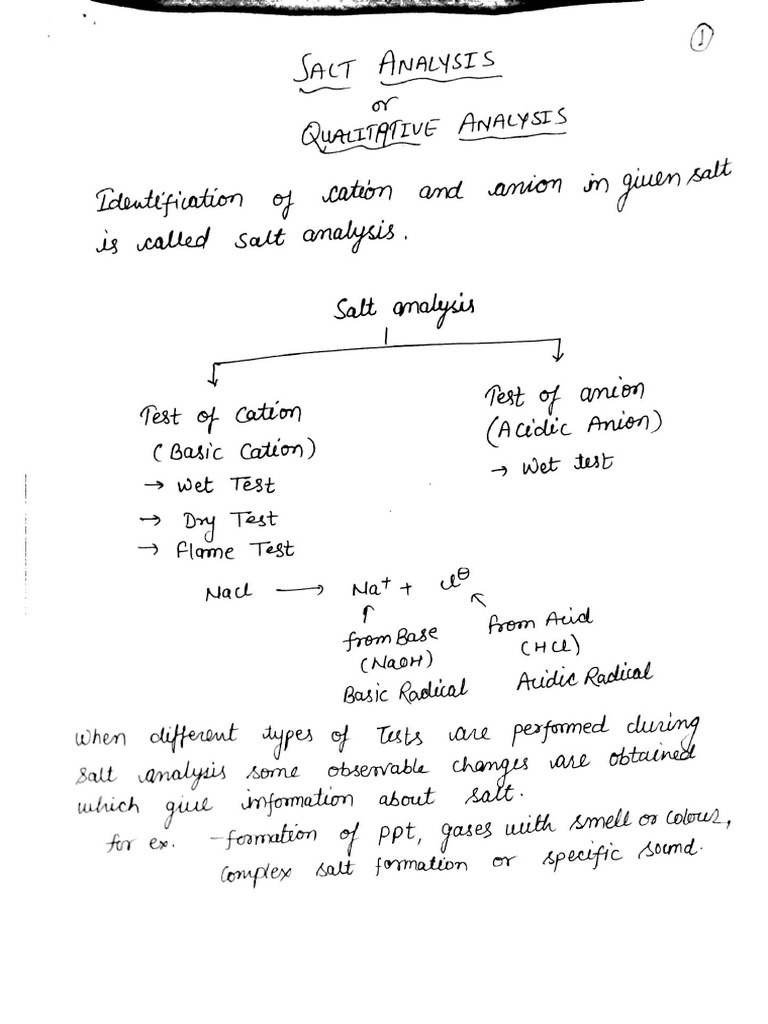 ①
SALT ANALYSIS
or
QUALITATIVE ANALYSIS
Identification of cation and anion in given salt
is called salt analysis.
Salt analysis
Test of Cation
(Basic Cation)
→ Wet Test
→ Dry Test
→ Flame Test
Test of anion
(Acidic Anion)
→ Wet test
NaCl ⟶ Na⁺ + Cl⊖
from Base
(NaOH)
Basic Radical
from Acid
(HCl)
Acidic Radical
When different types of Tests are performed during
salt analysis some observable changes are obtained
which give information about salt.
for ex. - formation of ppt, gases with smell or colour,
Complex salt formation or specific sound.